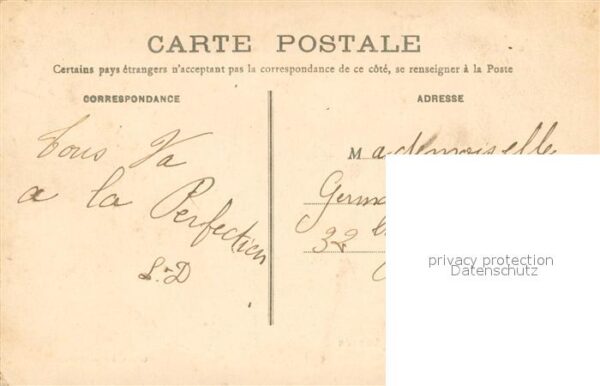 CARTE POSTALE
Certains pays étrangers n'acceptant pas la correspondance de ce côté, se renseigner à la Poste
CORRESPONDANCE
ADRESSE
Tous Va
a la Perfection
S.D
Mademoiselle
Germa
32
privacy protection
Datenschutz